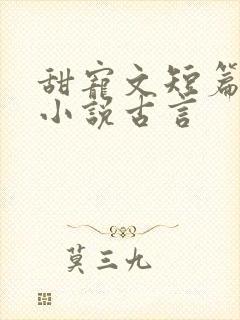 甜寵文短篇
小說古言
莫三九